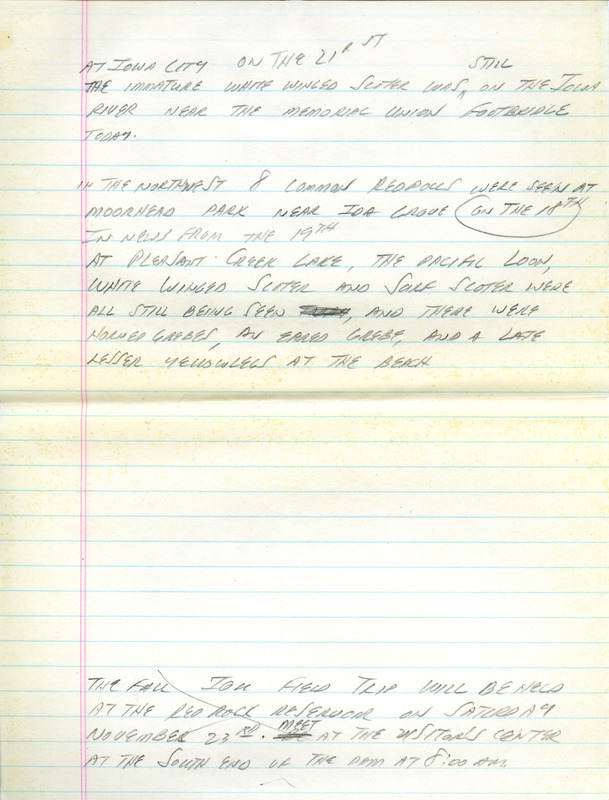 AT IOWA CITY ON THE 21ST
THE IMMATURE WHITE WINGED SCOTER WAS STILL ON THE IOWA
RIVER NEAR THE MEMORIAL UNION FOOTBRIDGE
TODAY.
IN THE NORTHWEST 8 COMMON REDPOLLS WERE SEEN AT
MOORHEAD PARK NEAR IDA GROVE ON THE 18TH
IN NEWS FROM THE 19TH
AT PLEASANT CREEK LAKE, THE PACIFIC LOON,
WHITE WINGED SCOTER AND SURF SCOTER WERE
ALL STILL BEING SEEN, AND THERE WERE
HORNED GREBES, AN EARED GREBE, AND A LATE
LESSER YELLOWLEGS AT THE BEACH
THE FALL IOU FIELD TRIP WILL BE HELD
AT THE RED ROCK RESERVOIR ON SATURDAY
NOVEMBER 23RD. MEET AT THE VISITORS CENTER
AT THE SOUTH END OF THE DAM AT 8:00 AM.